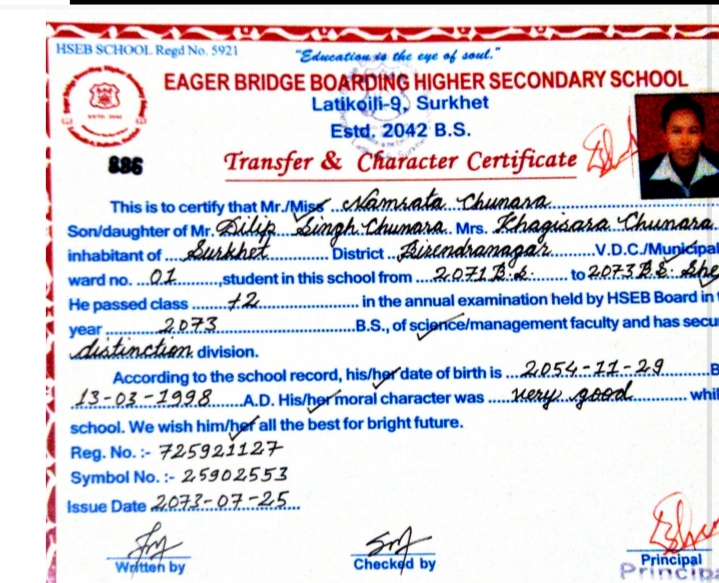 HSEB SCHOOL. Regd No. 5921
"Education is the eye of soul."
EAGER BRIDGE BOARDING HIGHER SECONDARY SCHOOL
Latikoili-9, Surkhet
Estd. 2042 B.S.
886
Transfer & Character Certificate
This is to certify that Mr./Miss Namrata Chunara
Son/daughter of Mr. Dilip Singh Chunara. Mrs. Khagisara Chunara.
inhabitant of Surkhet District Birendranagar V.D.C./Municipal
ward no. 01 ,student in this school from 2071 B.S. to 2073 B.S. She
He passed class +2 in the annual examination held by HSEB Board in
year 2073 B.S., of science/management faculty and has secu
distinction division.
According to the school record, his/her date of birth is 2054-11-29 B
13-03-1998 A.D. His/her moral character was very good whil
school. We wish him/her all the best for bright future.
Reg. No. :- 725921127
Symbol No. :- 25902553
Issue Date 2073-07-25
Written by Checked by Principal
Principa